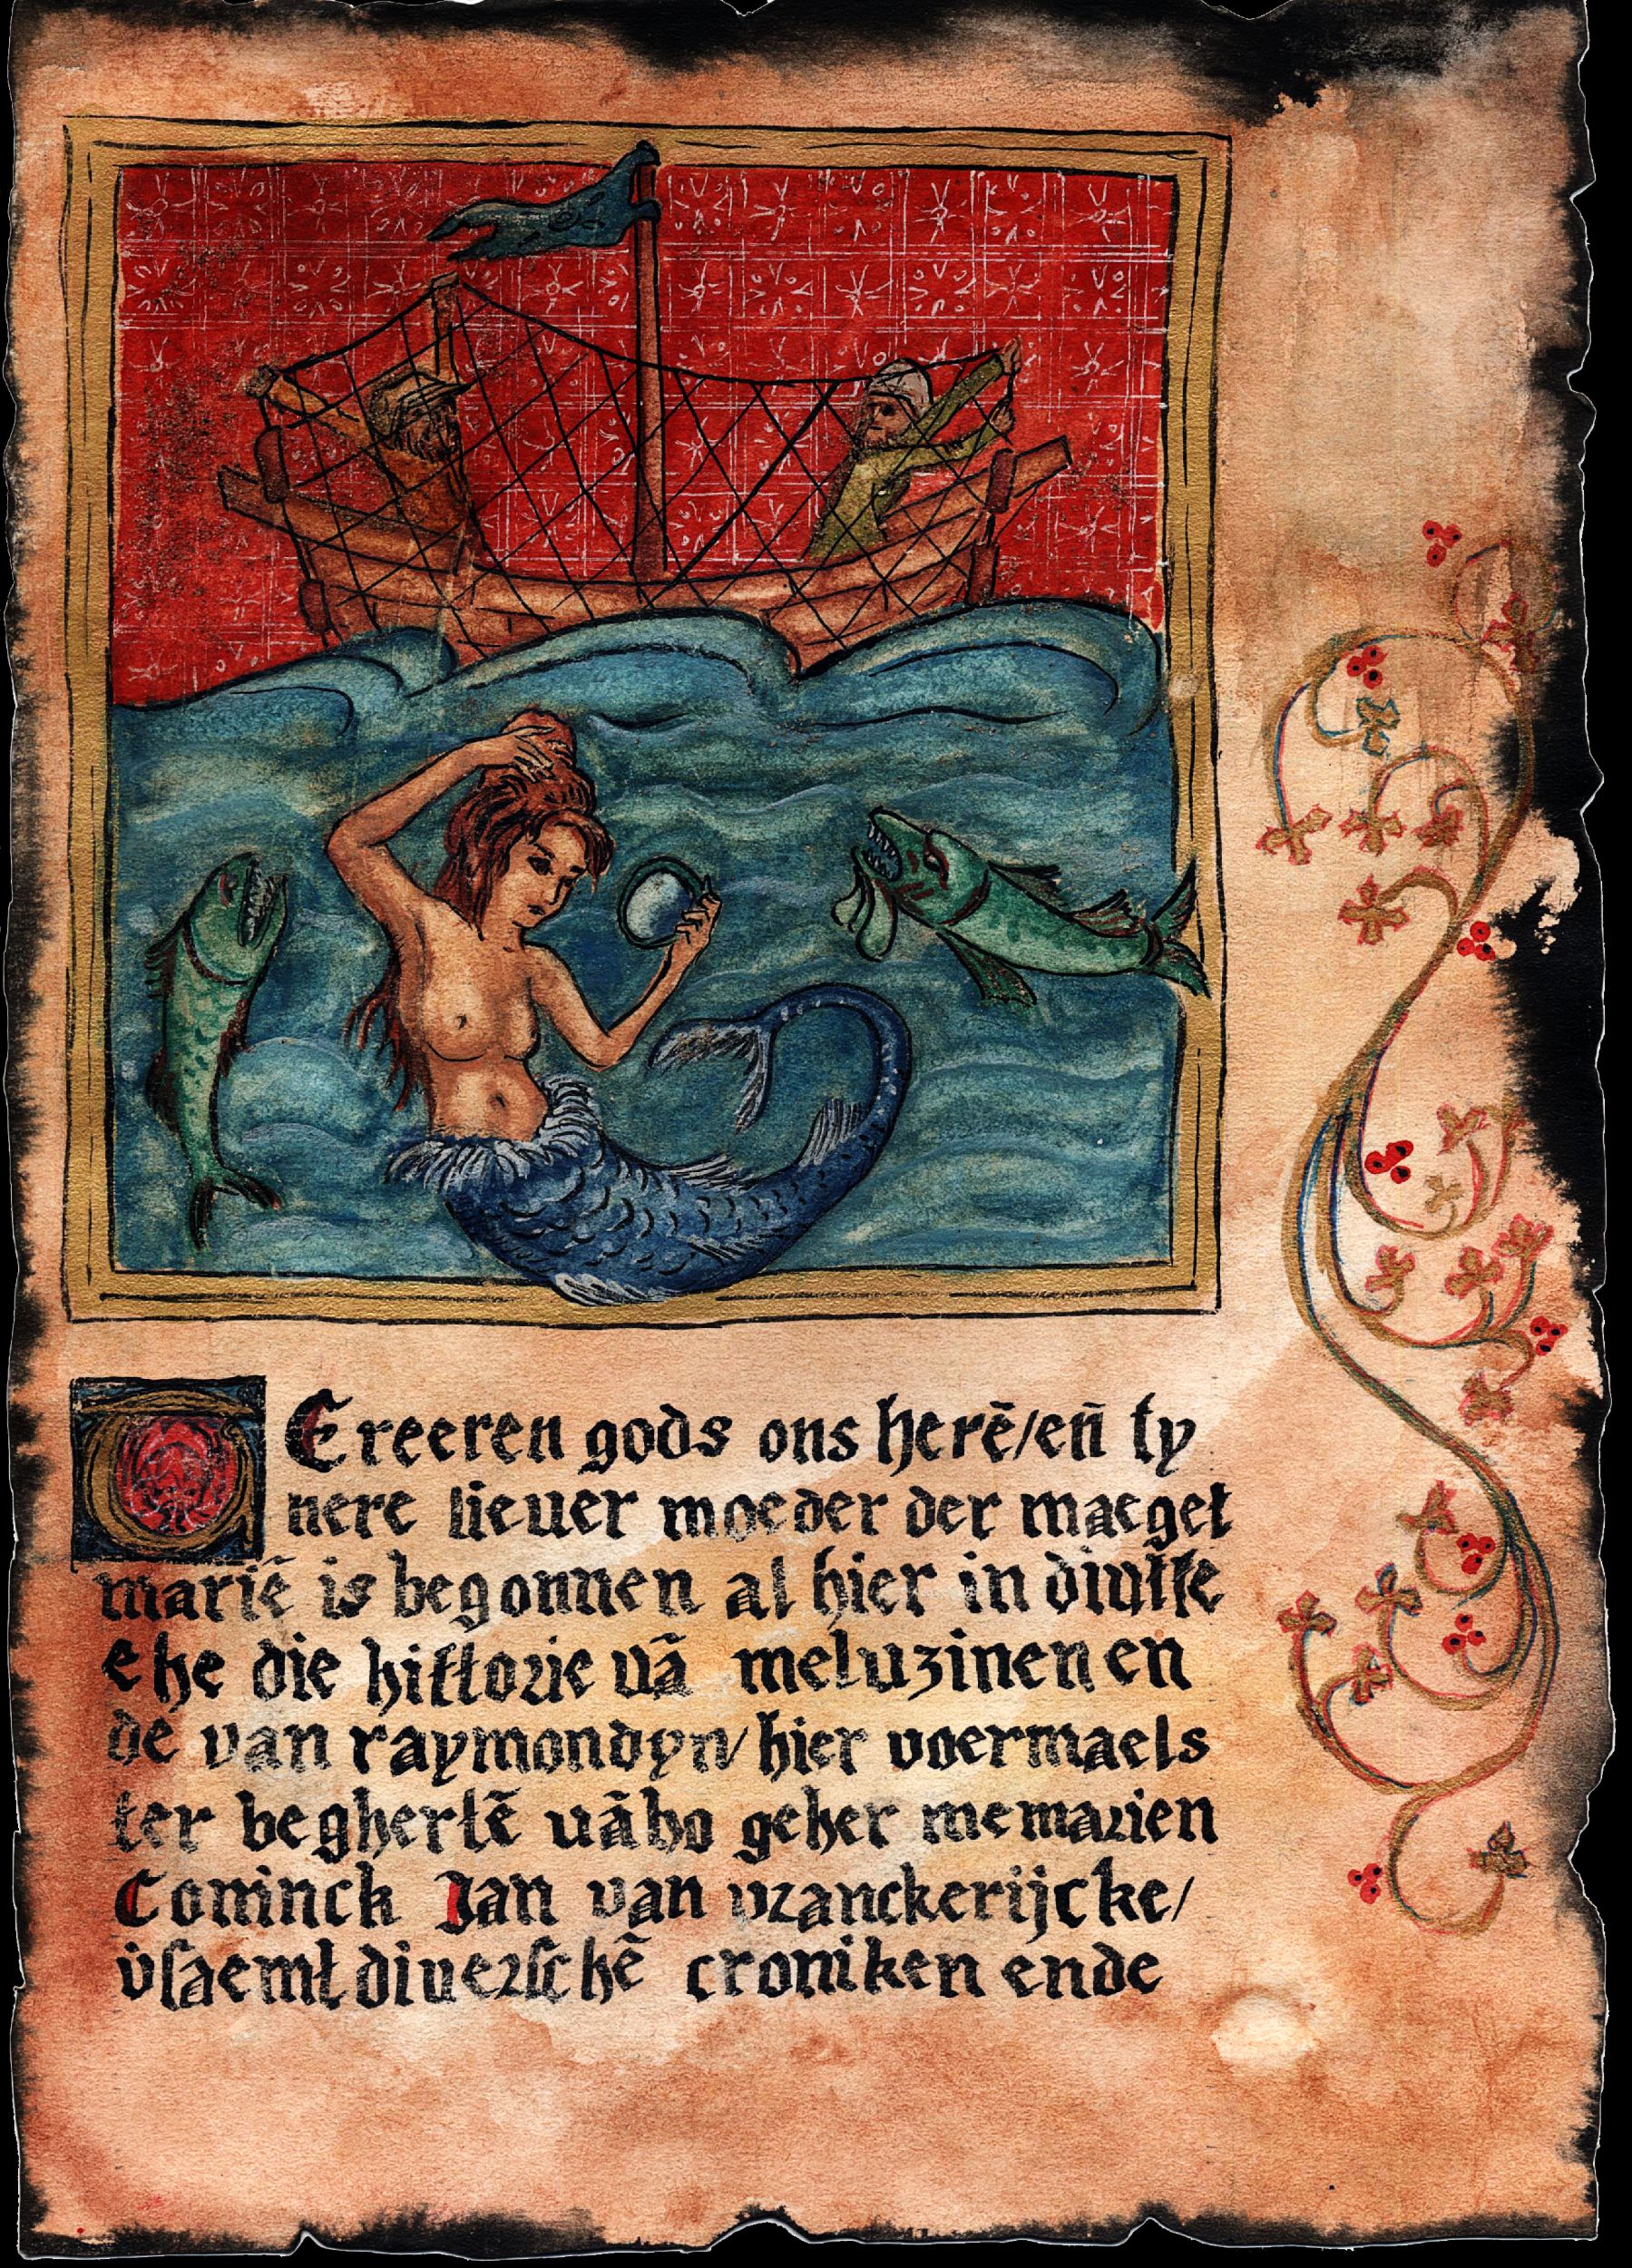 TEreeren gods ons herē/en̄ ty
nere lieuer moeder der maeget
mariē is begonnen al hier in diutſſe
ehe die hiſtorie uā meluzinen en
de van raymondyn/hier voermaels
ter beghertē uā ho geher memarien
Coninck Jan van vranckerijcke/
v̄ſaemt diuerſchē croniken ende